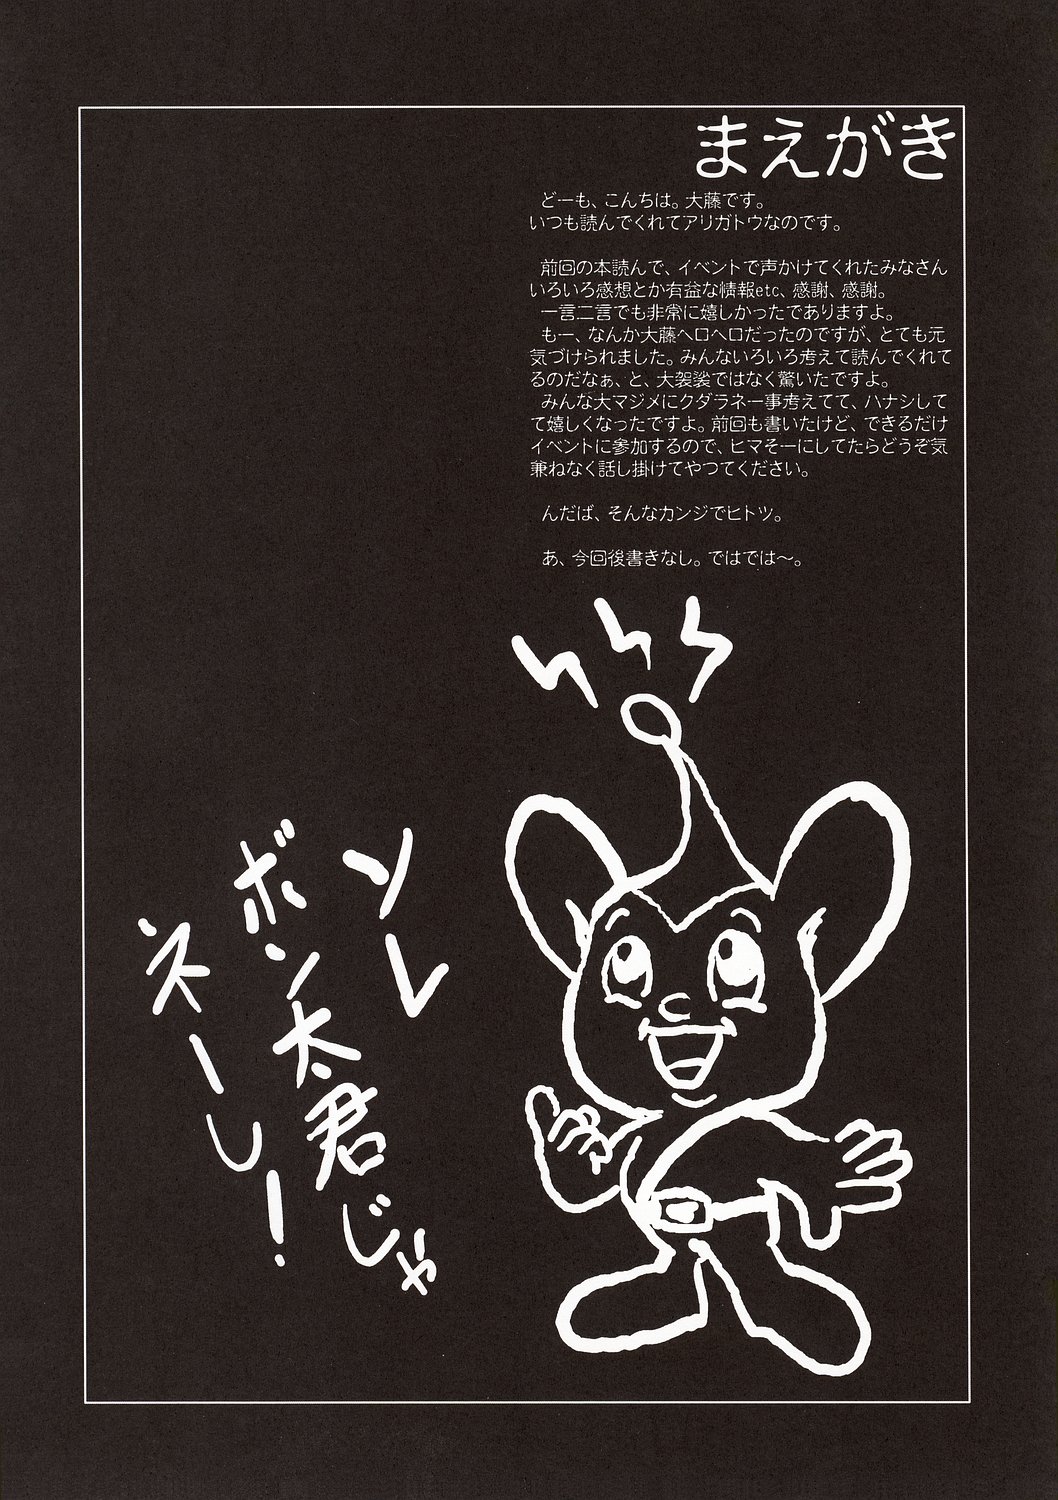 まえがき
どーも、こんちは。大藤です。
いつも読んでくれてアリガトウなのです。
前回の本読んで、イベントで声かけてくれたみなさん
いろいろ感想とか有益な情報etc、感謝、感謝。
一言二言でも非常に嬉しかったでありますよ。
もー、なんか大藤ヘロヘロだったのですが、とても元
気づけられました。みんないろいろ考えて読んでくれて
るのだなぁ、と、大袈裟ではなく驚いたですよ。
みんな大マジメにクダラネー事考えてて、ハナシして
て嬉しくなったですよ。前回も書いたけど、できるだけ
イベントに参加するので、ヒマそーにしてたらどうぞ気
兼ねなく話し掛けてやつてください。
んだば、そんなカンジでヒトツ。
あ、今回後書きなし。ではでは～。
ソレ
ボン太君じゃ
ネーし！